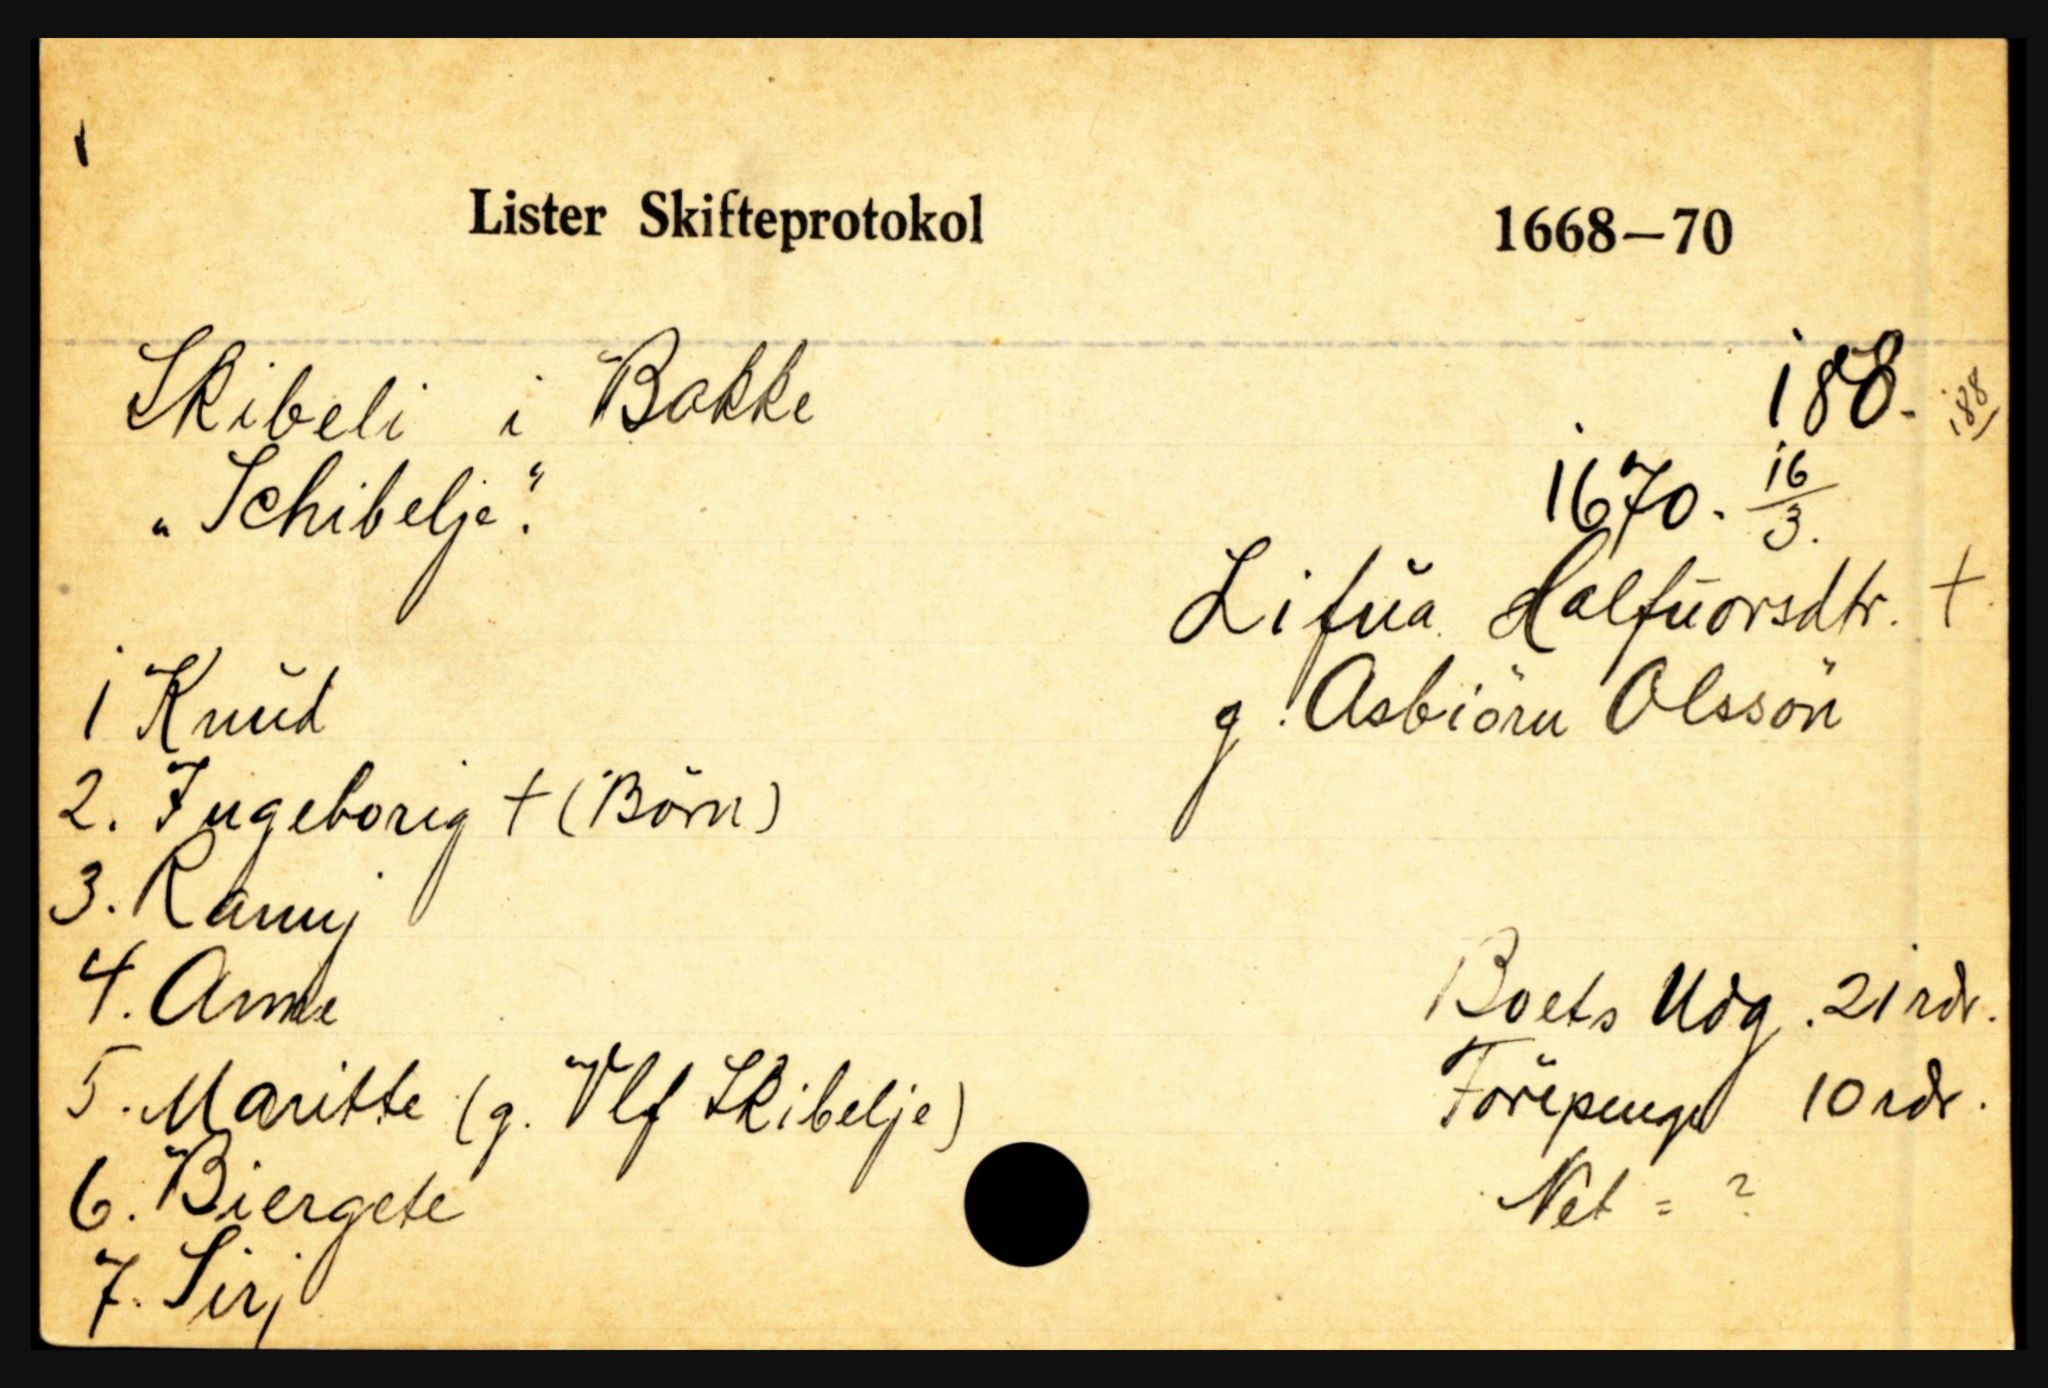 Lister Skifteprotokol 1668—70
Skibeli i Bakke 188. 188
„Schibelje“. 1670. 16/3.
Lifŭa Halfŭorsdtr. +
1 Knŭd g. Asbiörn Olssön
2. Ingeborig + (Börn)
3. Rannj
4. Anne Boets Udg. 21 rdr.
5. Maritte (g. Vlf Skibelje) Förepenge 10 rdr.
6. Biergete Net = ?
7. Sirj